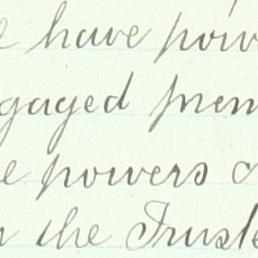 have pow
gaged prem
e powers o
the Truste